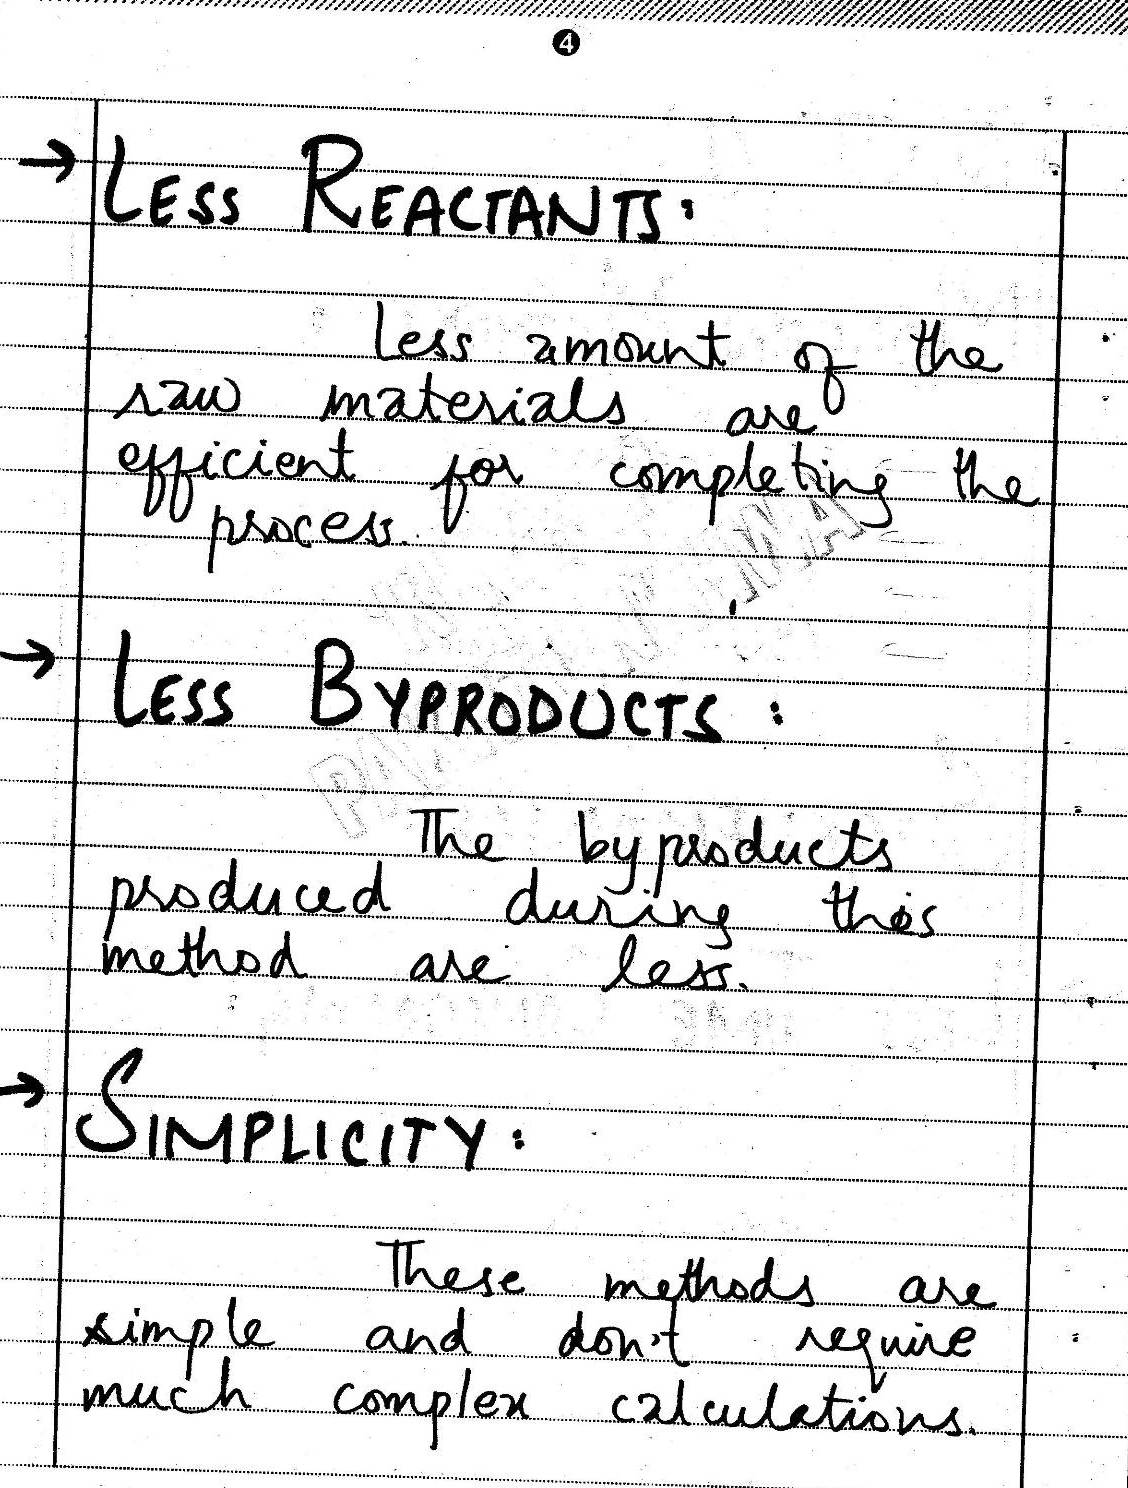 4
→ LESS REACTANTS:
Less amount of the
raw materials are
efficient for completing the
process.
→ LESS BYPRODUCTS:
The byproducts
produced during this
method are less.
→ SIMPLICITY:
These methods are
simple and don't require
much complex calculations.